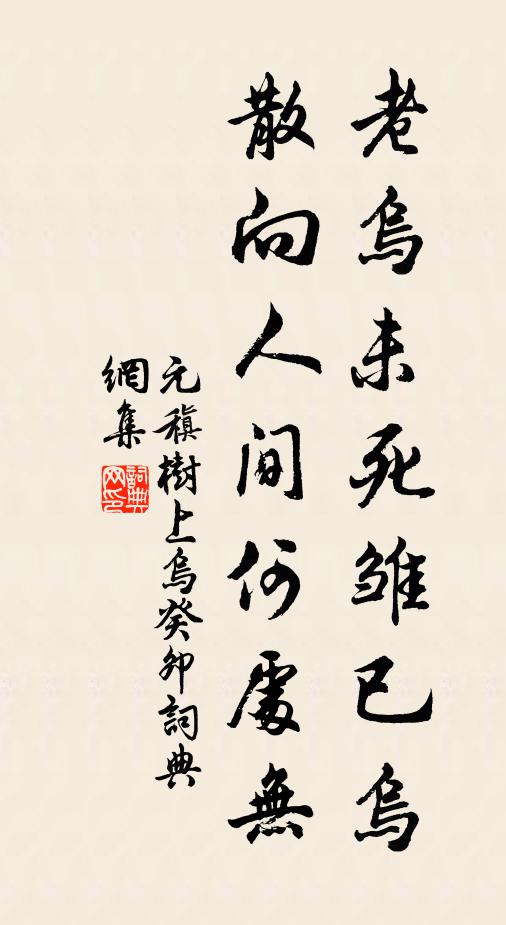 老烏未死雛已烏
散向人間何處無
元稹樹上烏癸卯詞典
網集
詞典網印